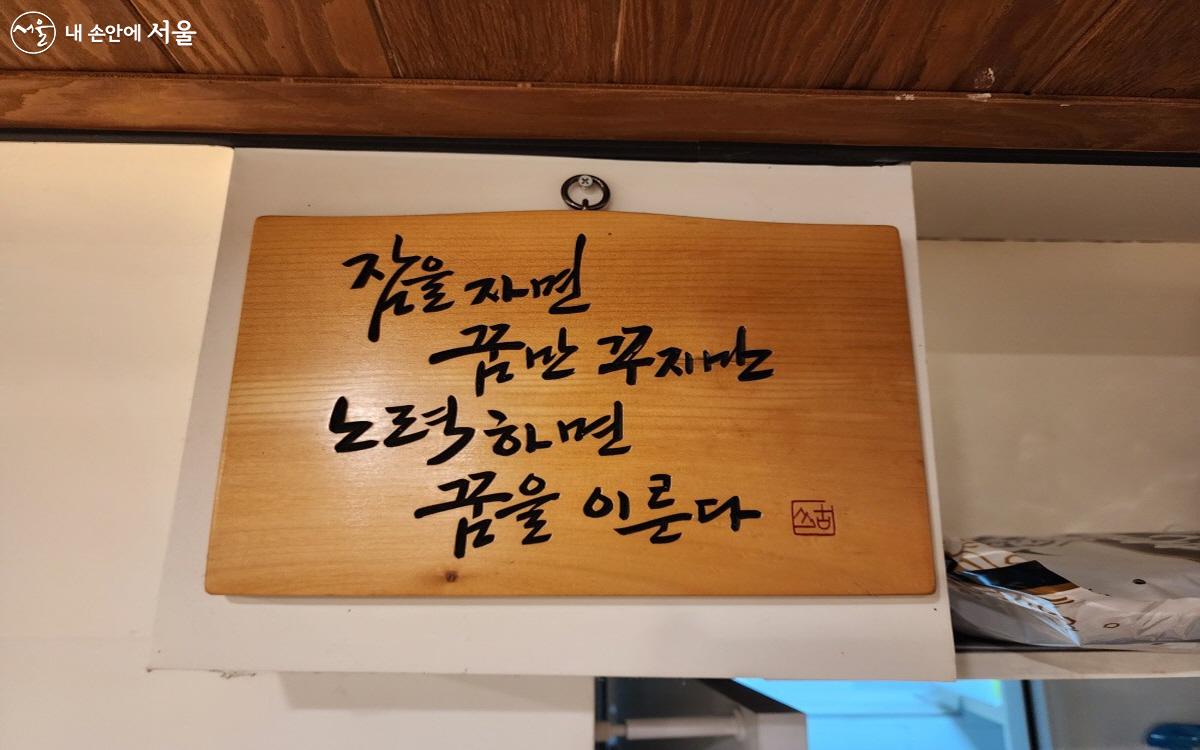 서울 내 손안에 서울
잠을 자면
꿈만 꾸지만
노력하면
꿈을 이룬다